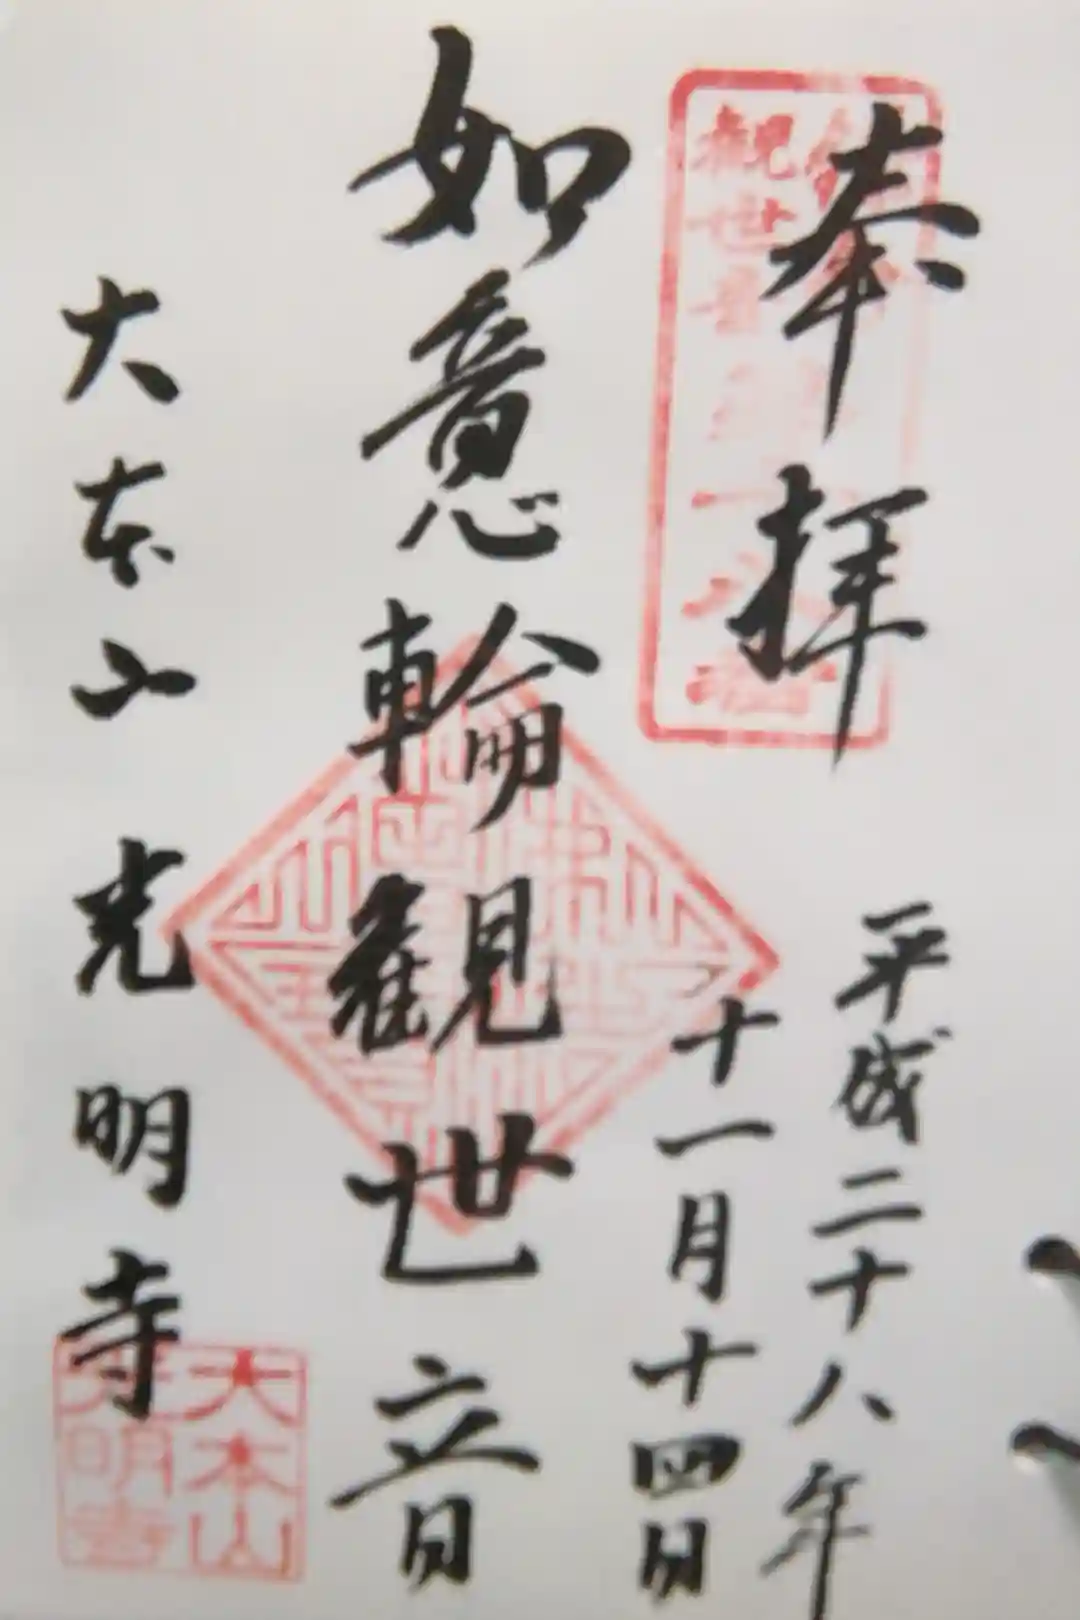 奉拝
平成二十八年
十一月十四日
如意輪観世音
大本山光明寺
観世音
大本山
光明寺